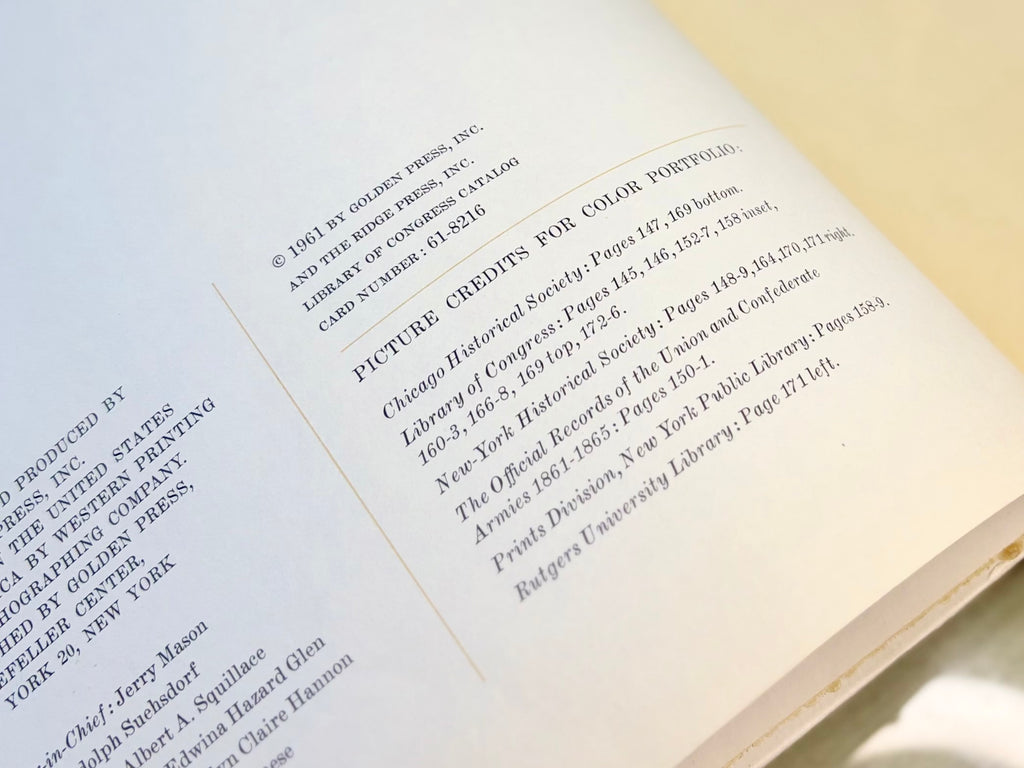 D PRODUCED BY
PRESS, INC.
N THE UNITED STATES
CA BY WESTERN PRINTING
HOGRAPHING COMPANY.
HED BY GOLDEN PRESS,
EFELLER CENTER,
YORK 20, NEW YORK
-in-Chief: Jerry Mason
dolph Suehsdorf
Albert A. Squillace
Edwina Hazard Glen
lyn Claire Hannon
© 1961 BY GOLDEN PRESS, INC.
AND THE RIDGE PRESS, INC.
LIBRARY OF CONGRESS CATALOG
CARD NUMBER: 61-8216
PICTURE CREDITS FOR COLOR PORTFOLIO:
Chicago Historical Society: Pages 147, 169 bottom.
Library of Congress: Pages 145, 146, 152-7, 158 inset,
160-3, 166-8, 169 top, 172-6.
New-York Historical Society: Pages 148-9, 164, 170, 171 right.
The Official Records of the Union and Confederate
Armies 1861-1865: Pages 150-1.
Prints Division, New York Public Library: Pages 158-9.
Rutgers University Library: Page 171 left.